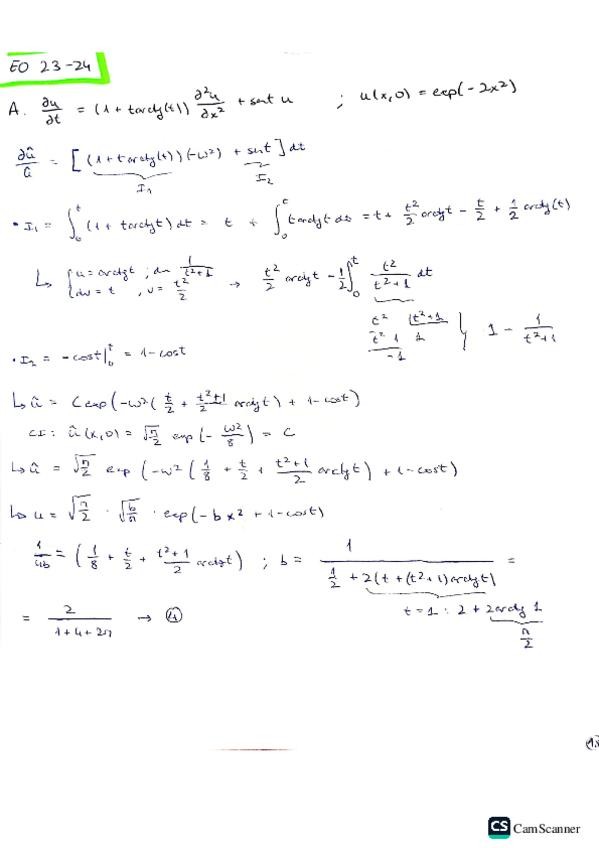 EO 23-24
A. ∂u/∂t = (1 + t arctg(t)) ∂²u/∂x² + sent u ; u(x,0) = exp(-2x²)
∂û/û = [(1 + t arctg(t))(-ω²) + sent] dt
I₁ I₂
• I₁ = ∫₀ᵗ (1 + t arctg t) dt = t + ∫₀ᵗ t arctg t dt = t + t²/2 arctg t - t/2 + 1/2 arctg(t)
↳ { u = arctg t ; du 1/(t²+1) → t²/2 arctg t - 1/2 ∫₀ᵗ t²/(t²+1) dt
dv = t , v = t²/2
t² | t²+1 } 1 - 1/(t²+1)
-t² 1 1
-1
• I₂ = -cost|₀ᵗ = 1-cost
↳ û = C exp(-ω²(t/2 + (t²+1)/2 arctg t) + 1-cost)
CI: û(x,0) = √(π/2) exp(-ω²/8) = C
↳ û = √(π/2) exp(-ω²(1/8 + t/2 + (t²+1)/2 arctg t) + 1-cost)
↳ u = √(π/2) · √(b/π) · exp(-bx² + 1-cost)
1/4b = (1/8 + t/2 + (t²+1)/2 arctg t) ; b = 1/(1/2 + 2(t + (t²+1) arctg t)) =
= 2/(1+4+2π) → ④
t=1 : 2 + 2 arctg 1
π/2
CS CamScanner